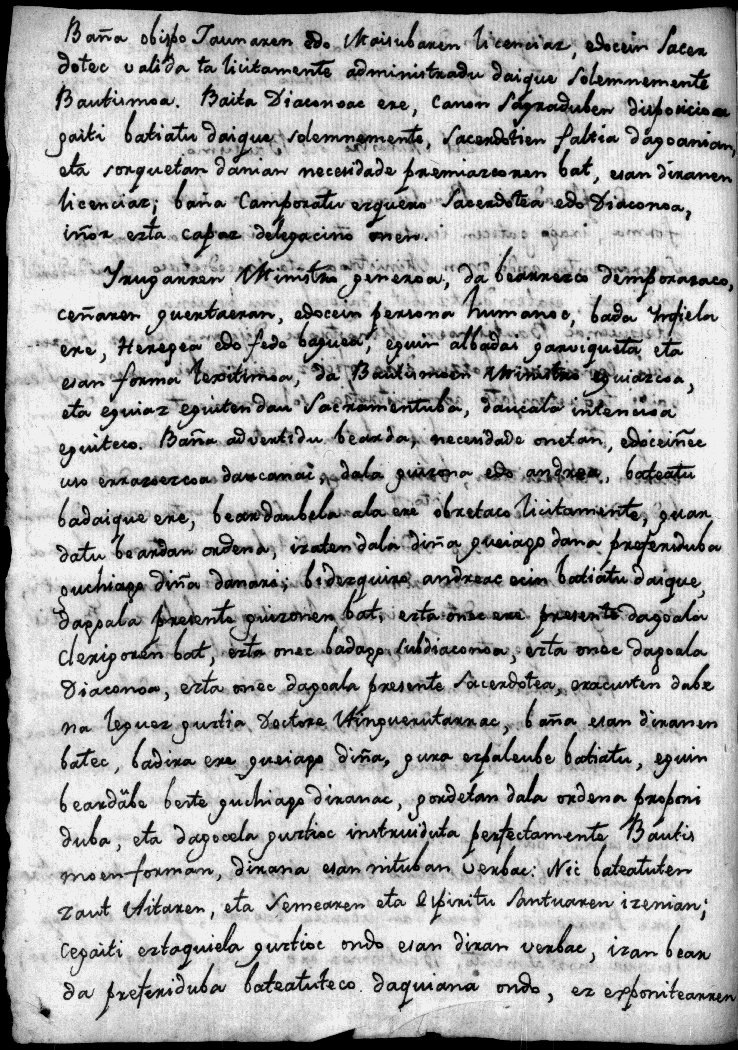 Baña obispo Jaunaren edo Maisubaren licenciaz, edocein sacer
dotec valida ta licitamente administradu daique solemnemente
Bautismoa. Baita Diaconoac ere, Canon sagraduben disposicioa
gaiti batiatu daique solemnemente, sacerdotien faltia dagoanian,
eta sorquetan danian necesidade premiazcoren bat, esan diranen
licenciaz; baña Camporatu ezquero Sacerdotea edo Diaconoa,
iñor ezta capaz delegaciño onen.
Yrugarren Ministro generoa, da bearrezco demporaraco,
ceñaren guertaeran, edocein persona humanoc, bada Infiela
ere, Heregea edo fede baguea, eguin albadai garviqueta eta
esan forma lexitimoa, da Bautismoen Ministro eguiazcoa,
eta eguiaz eguiten dau Sacramentuba, daucala intencioa
eguiteco. Baña advertidu bearda, necesidade onetan, edoceiñec
uso errazoezcoa daucanac, dala guizona edo andrea, bateatu
badaique ere, beardaubela ala ere obretaco licitamente, guar
datu beardan ordena, izaten dala diña gueiago dana preferiduba
guchiago diña danari; bidezquiro, andreac ecin batiatu daique,
dagoala presente guizonen bat, ezta onec ere presente dagoala
Clerigoren bat, ezta onec badago subdiaconoa, ezta onec dagoala
Diaconoa, ezta onec dagoala presente sacerdotea, eracusten dabe
na leguez guztia Doctore Aingueru tarrac, baña esan diranen
batec, badira ere gueiago diña, gura ezpaleube batiatu, eguin
beardäbe beste guchiago diranac, gordetan dala ordena proponi
duba, eta dagocela guztioc instruiduta perfectamente Bautis
moen forman, dirana esan nituban verbac: Nic bateatuten
zaut Aitaren, eta Semearen eta Espiritu Santuaren izenian;
Cegaiti eztaquiela guztioc ondo esan diran verbac, izan bear
da preferiduba bateatuteco daquiana ondo, ez esponitearren